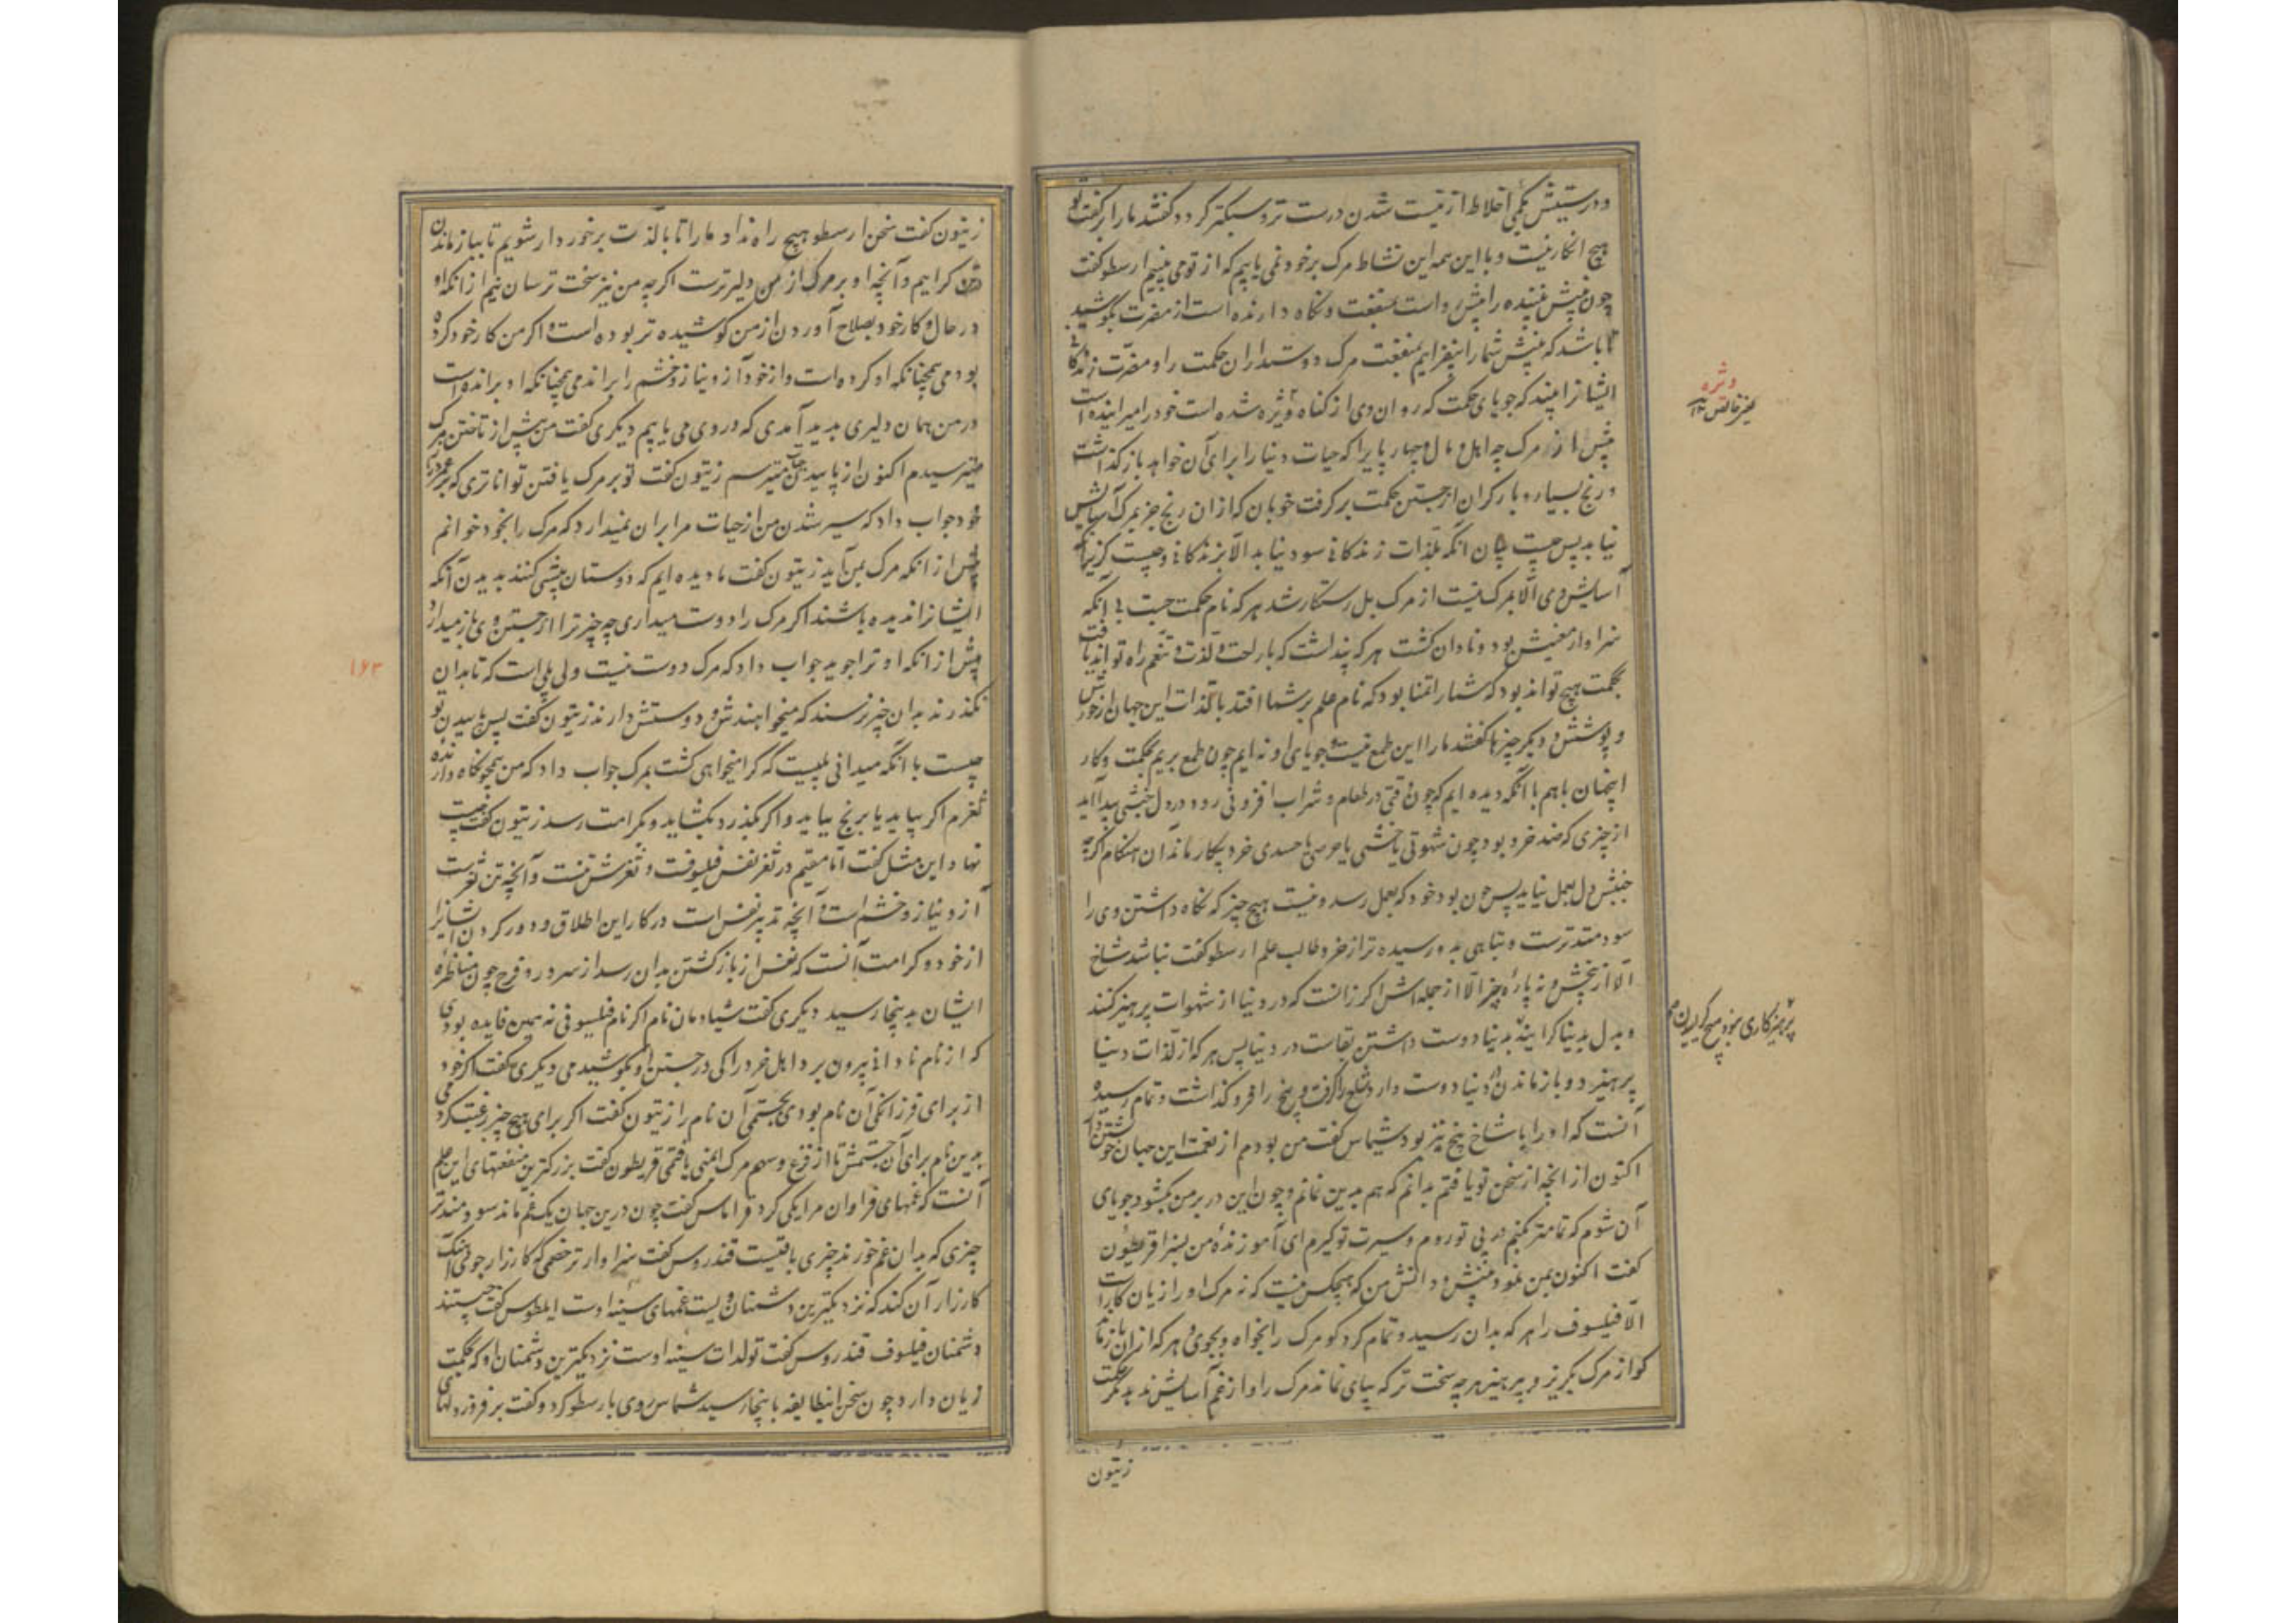 و درستیش بکمی اخلاط از نیست شدن درست تر و سبکتر کردد کفتند مارا برکفت تو
هیچ انکار نیست و با این همه این نشاط مرک بر خود نمی یابیم که از تو می بینیم ارسطو کفت
چون بینش بیننده را پیش رو است بمنفعت و نکاه دارنده است از مضرت بکوشید
تا باشد که بینش شما را بیفزایم بمنفعت مرک دوستداران حکمت را و مضرت
ایشانرا بینند که جویای حکمت که روان وی از کناه ویژه شده است خود را میرانیده است
پیش از مرک چه اهل و مال و چهارپایرا که حیات دنیا را برای آن خواهد باز کذاشت
و رنج بسیار و بار کران از جستن حکمت بر کرفت خوبان که از ان رنج جز بمرک آسایش
نیابد پس چیست بدان انکه بلذات زندکانی سود نیابد الا بزندکانی و چیست کریز
آسایش وی الا بمرک نیست از مرک بل رستکار شد هر که نام حکمت جست بی آنکه
سزاوار معنیش بود و نادان کشت هر که پنداشت که با راحت و لذت و تنعم راه تواند یافت
بحکمت هیچ تواند بود که شما را تمنا بود که نام علم بر شما افتد با لذات این جهان از خورش
و پوشش و دیکر چیزها کفتند مارا این طمع نیست و جویای او نه ایم چون طمع بریم بحکمت و کار
اینجهان باهم با آنکه دیده ایم که چون وقتی در طعام و شراب افزونی رود در دل جنبشی پیدا آید
از چیزی که ضد خرد بود چون شهوتی یا خشمی یا حرصی یا حسدی خرد بیکار ماند آن هنکام اکرچه
جنبش دل بعمل نیاید پس چون بود خود که بعمل رسد و نیست هیچ چیز که نکاه داشتن وی را
سودمندترست و تباهی بدو رسیده تر از خرد طالب علم ارسطو کفت نباشد شاخ
الا از بیخش و نه پارهٔ چیز الا از جمله اش اکر زانست که در دنیا از شهوات پرهیز کنند
و بدل بدینا کرایند بدینا دوست داشتن بقاست در دنیا پس هر که از لذات دنیا
پرهیزد و باز ماندن دنیا دوست دارد شاخ را کرفت و بیخ را فرو کذاشت و تمام رسیده
آنست که او را با شاخ بیخ نیز بود شیماس کفت من بودم از نعمت این جهان
اکنون از انچه از سخن تو یافتم بدانم که هم بدین نمانم و چون این در بر من بکشود جویای
آن شوم که تمامتر بکنم در پی تو روم و سیرت تو کیرم ای آموزندهٔ من بسزا قریطون
کفت اکنون بمن نمود بینش و دانش من که هیچکس نیست که نه مرک او را زیان کارست
الا فیلسوف را هر که بدان رسید و تمام کرد کو مرک را بخواه و بجوی و هر که از ان باز ماند
کو از مرک بکریز و بپرهیز هر چه سخت تر که بپای نماند مرک را و از غم آسایش ندهد مکر حکمت
ویژه
یعنی خالص ۱۲
زیتون
زیتون کفت سخن ارسطو هیچ راه نداد مارا تا با لذت برخوردار شویم تا بباز ماندن
کراییم و آنچه او بر مرک از من دلیرترست اکرچه من نیز سخت ترسان نیم از انکه او
در حال و کار خود بصلاح آوردن از من کوشیده تر بوده است و اکر من کار خود کرده
بودمی همچنانکه او کرده است و از خود آز و نیاز و خشم را براندمی همچنانکه او براندهٔ است
در من همان دلیری بدید آمدی که در وی می یابیم دیکری کفت من پیش از تاختن مرک
میترسیدم اکنون از پایید می ترسم زیتون کفت تو بر مرک یافتن تواناتری که بر عمر دراز
خود جواب داد که سیر شدن من از حیات مرا بران نمیدارد که مرک را بخود خوانم
پیش از انکه مرک بمن آید زیتون کفت ما دیده ایم که دوستان پیشی کنند بدیدن آنکه
ایشانرا ندیده باشند اکر مرک را دوست میداری چه چیز ترا از جستن وی باز میدارد
پیش از انکه او ترا جوید جواب داد که مرک دوست نیست ولی پلی است که تا بدان
نکذرند بدان چیز نرسند که میخواهندش و دوستش دارند زیتون کفت پس پاییدن تو
چیست با آنکه میدانی بیست که کرا میخواهی کشت بمرک جواب داد که من همچو نکاه دارنده
ثغرم اکر بپاید یا برنج بپاید و اکر بکذرد بکشاید و بکرامت رسد زیتون کفت چیست
نهاد این مثل کفت اما مقیم در ثغر نفس فیلسوفست و ثغرش تنست و آنچه تن ثغرست
آز و نیاز و خشم است و آنچه تدبیر نفس است در کار این اطلاق و دور کردن ایشانرا
از خود و کرامت آنست که نفس از باز کشتن بدان رسد از سرور و فرح چون مناظرهٔ
ایشان بدینجا رسید دیکری کفت شیادمان نام اکر نام فیلسوفی نه همین فایده بودی
که از نام نادانی بیرون برد اهل خرد را کی در جستن او بکوشیدمی دیکری کفت اکر خود
از برای فرزانکی آن نام بودی بجستمی آن نام را زیتون کفت اکر برای هیچ چیز رغبت نکردمی
بدین نام برای آن جستمش تا از فزع و سهم مرک ایمنی یافتمی قریطون کفت بزرکترین منفعتهای این علم
آنست که غمهای فراوان مرا یکی کرد فراماس کفت چون درین جهان یک غم ماند سودمندتر
چیزی که بدان غم خورند چیزی باقیست قندروس کفت سزاوارتر خصمی که کارزار جوئی
کارزار آن کند که نزدیکترین دشمنان ویست غمهای سینه اوست ایلطوس کفت چیستند
دشمنان فیلسوف قندروس کفت تولدات سینه اوست نزدیکترین دشمنان او که بحکمت
زیان دارد چون سخن انطایفه باینجا رسید شماس روی بارسطو کرد و کفت برفروز دلهای
۱۶۳